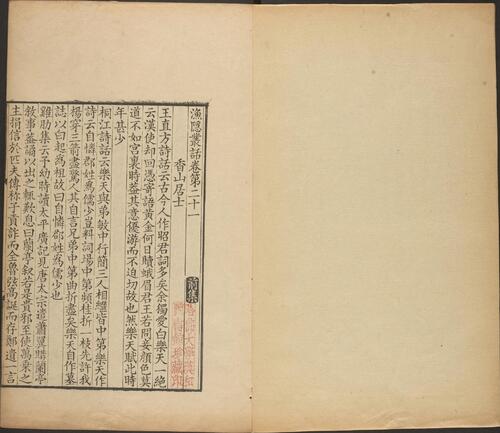 漁隱叢話卷第二十一
前集
香山居士
王直方詩話云古今人作昭君詞多矣余獨愛白樂天一絕
云漢使却回憑寄語黃金何日贖蛾眉君王若問妾顏色莫
道不如宮裏時蓋其意優游而不迫切故也然樂天賦此時
年甚少
桐江詩話云樂天與弟敏中行簡三人相繼皆中第樂天作
詩云自憐郡姓為儒少豈料詞場中第頻桂折一枝先許我
楊穿三箭盡驚人其自言兄弟中第曲折盡矣樂天自作墓
誌以白起為祖故曰自憐郡姓為儒少也
雞肋集云予幼時讀太平廣記見唐太宗遣蕭翼賺蘭亭
敘事蓋譎以出之輒歎息曰蘭亭敘若是貴邪至使萬乘之
主捐信於匹夫傳稱子貢詐而全魯弦高誕而存鄭遺一言